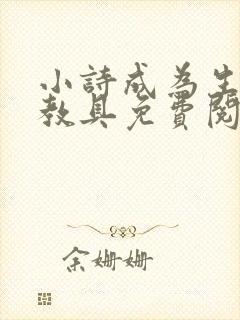 小詩成為生
教具免費閱
余姍姍